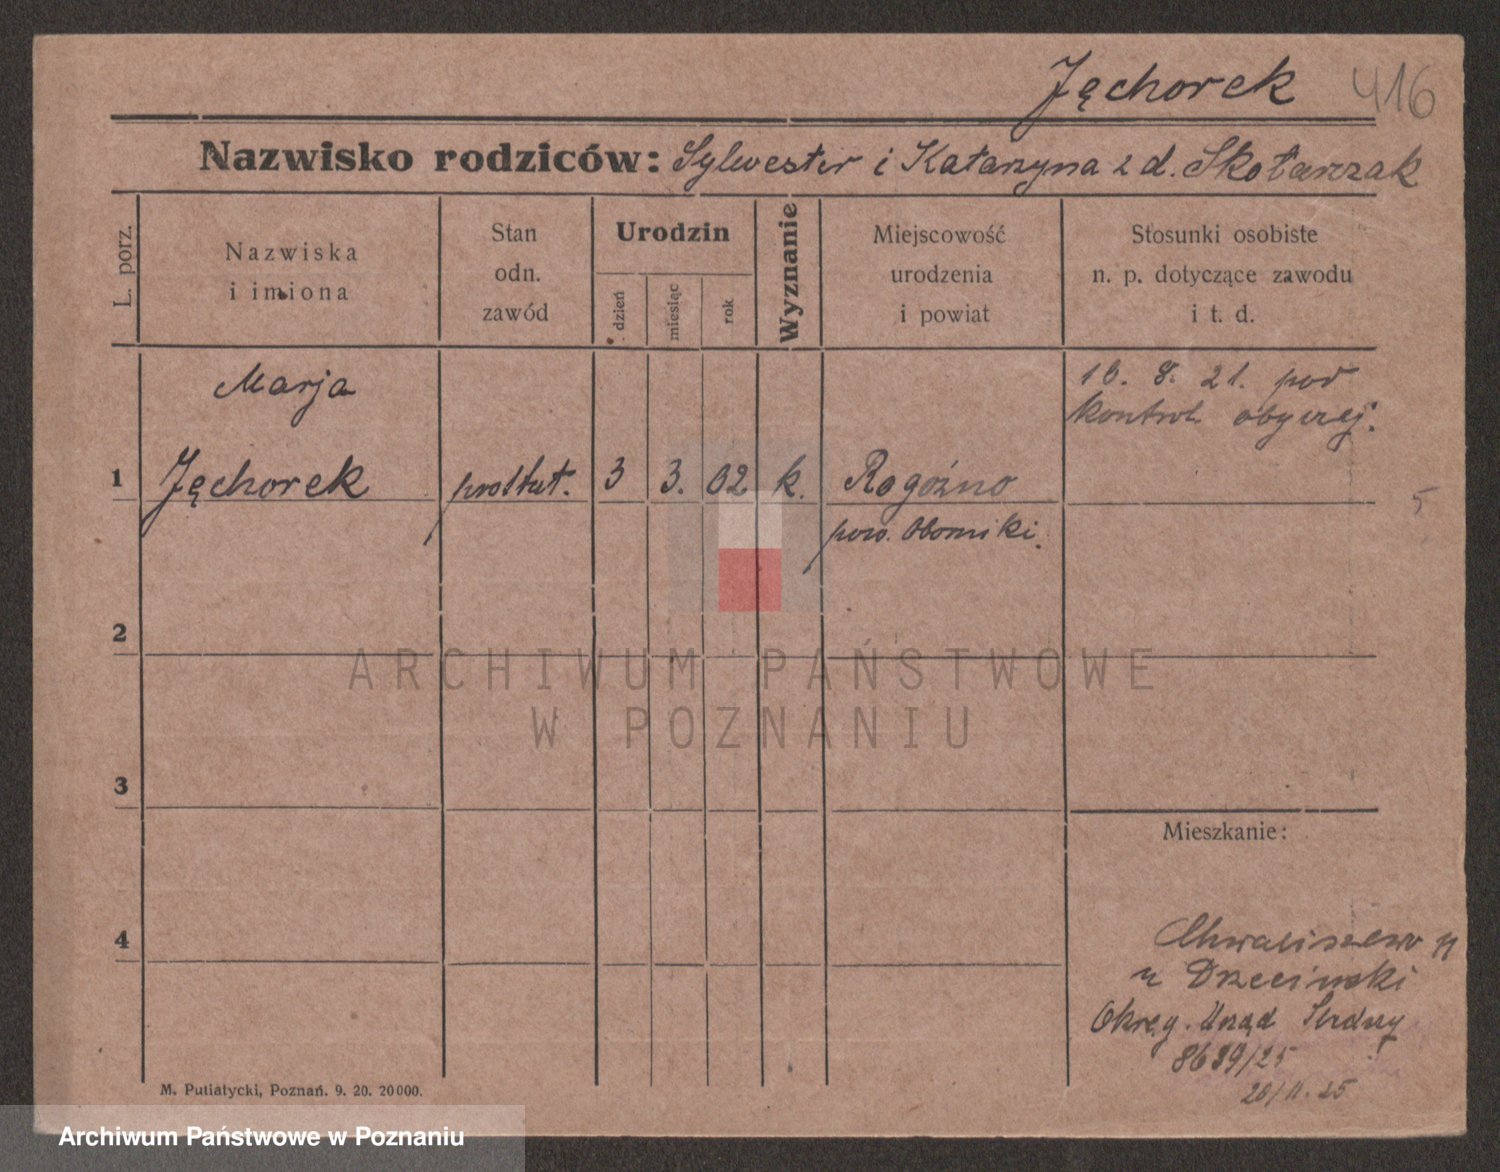 Jęchorek 416
Nazwisko rodziców: Sylwester i Katarzyna z d. Skotarczak
L. porz.
Nazwiska
i imiona
Stan
odn.
zawód
Urodzin
dzień
miesiąc
rok
Wyznanie
Miejscowość
urodzenia
i powiat
Stosunki osobiste
n. p. dotyczące zawodu
i t. d.
Marja
16. 8. 21. pod
kontrol. obyczaj.
1 Jęchorek prostut. 3 3. 02 k. Rogóźno
5
pow. Oborniki.
2
ARCHIWUM PAŃSTWOWE
W POZNANIU
3
Mieszkanie:
4
Chwaliszewo
u Drzecinski
Okręg. Urząd
8639/25
20/11. 25
M. Putiatycki, Poznań. 9. 20. 20000.
Archiwum Państwowe w Poznaniu